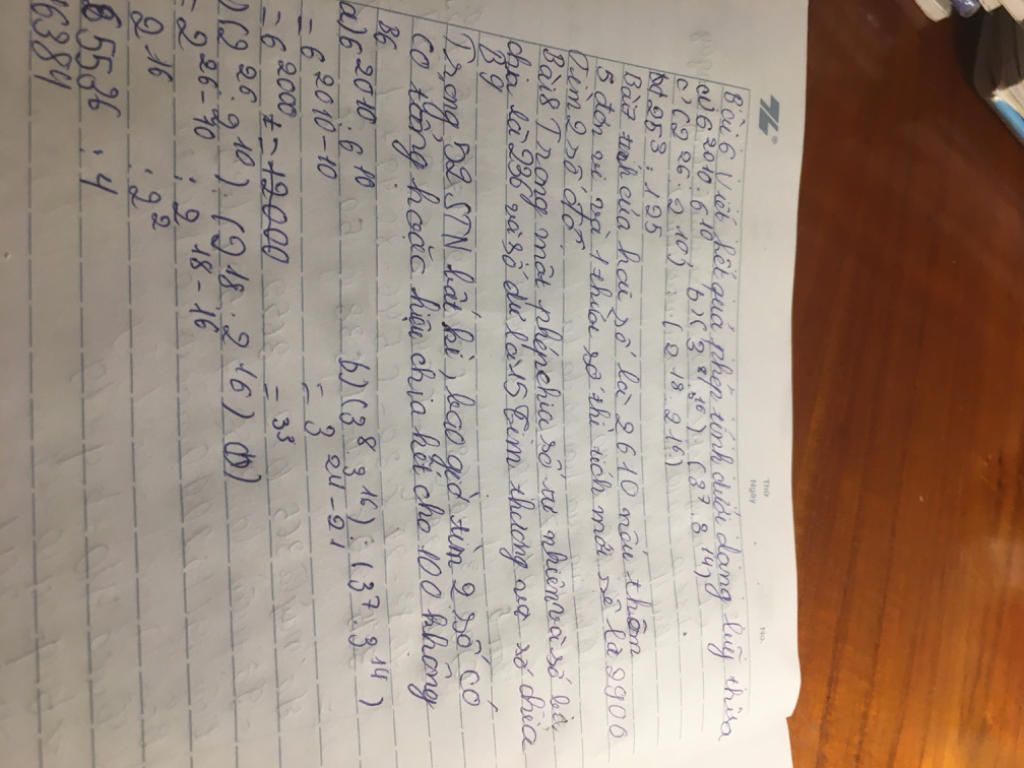 No.
Thứ
Ngày
Bài 6 Viết kết quả phép tính dưới dạng luỹ thừa
a) 6 2010 : 6 10 b) (3 8 . 3 16) : (3 7 . 3 14)
c) (2 26 : 2 10) : (2 18 : 2 16)
d) 253 : 125
Bài 7 tích của hai số là 2610 nếu thêm
5 đơn vị vào 1 thừa số thì tích mới sẽ là 2900
Tìm 2 số đó
Bài 8 Trong một phép chia số tự nhiên số bị
chia là 236 và số dư là 15 tìm thương và số chia
Bài 9
Trong 52 STN bất kì, bao giờ tìm 2 số có
có tổng hoặc hiệu chia hết cho 100 không
B6
a) 6 2010 : 6 10 b) (3 8 3 16) : (3 7 . 3 14)
= 6 2010 - 10 = 3 24 - 21
= 6 2000 = 3 3
(2 26 : 2 10) : (2 18 : 2 16)
= 2 26 - 10 : 2 18 - 16
2 16 : 2 2
65536 : 4
16384